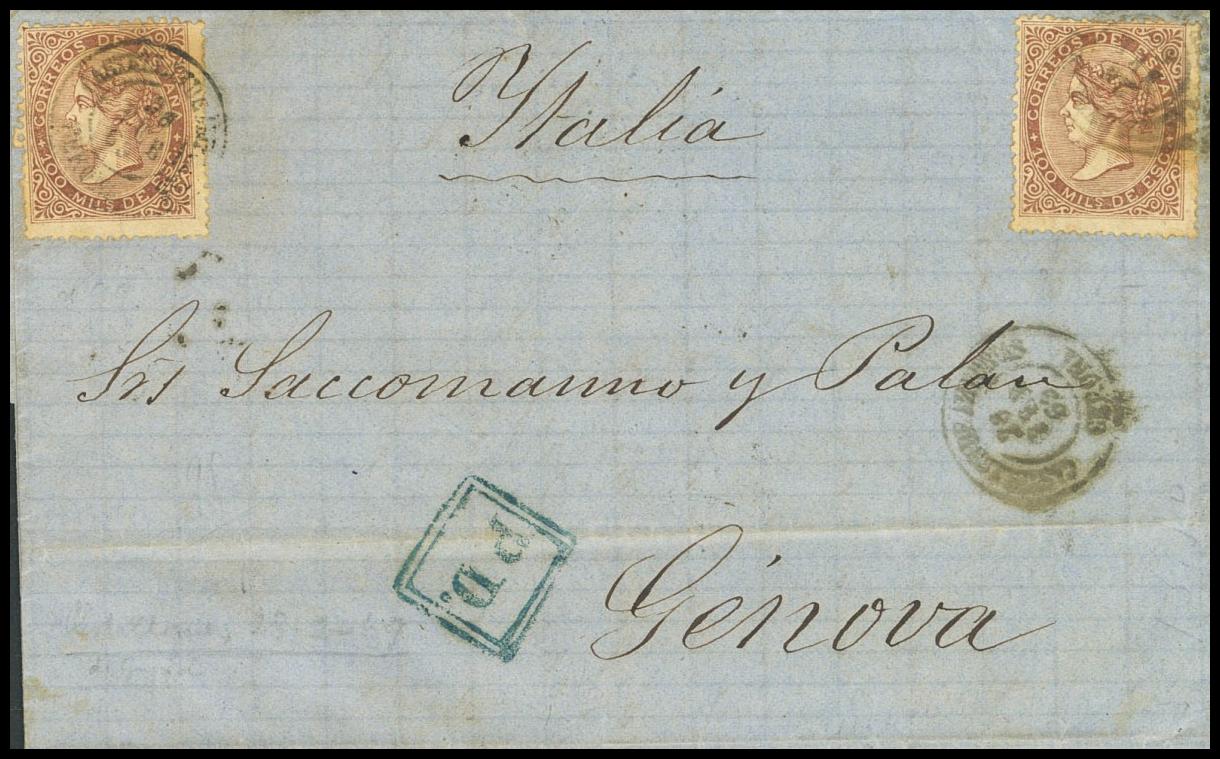 CORREOS DE ESPAÑA
100 MILS DE ESCO
CORREOS DE ESPAÑA
100 MILS DE ESCO
Italia
Srs Saccomanno y Palau
P.D.
Génova